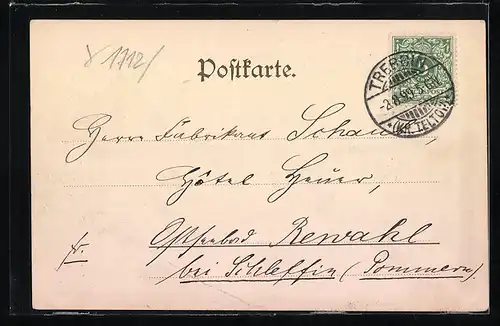 1712/
Postkarte.
TREBBIN
-2.8.99.
*(KR. TELTOW)
Herrn Fabrikant
Hôtel Heuer,
fr. Ostseebad Rewahl
bei Schleffin (Pommern)